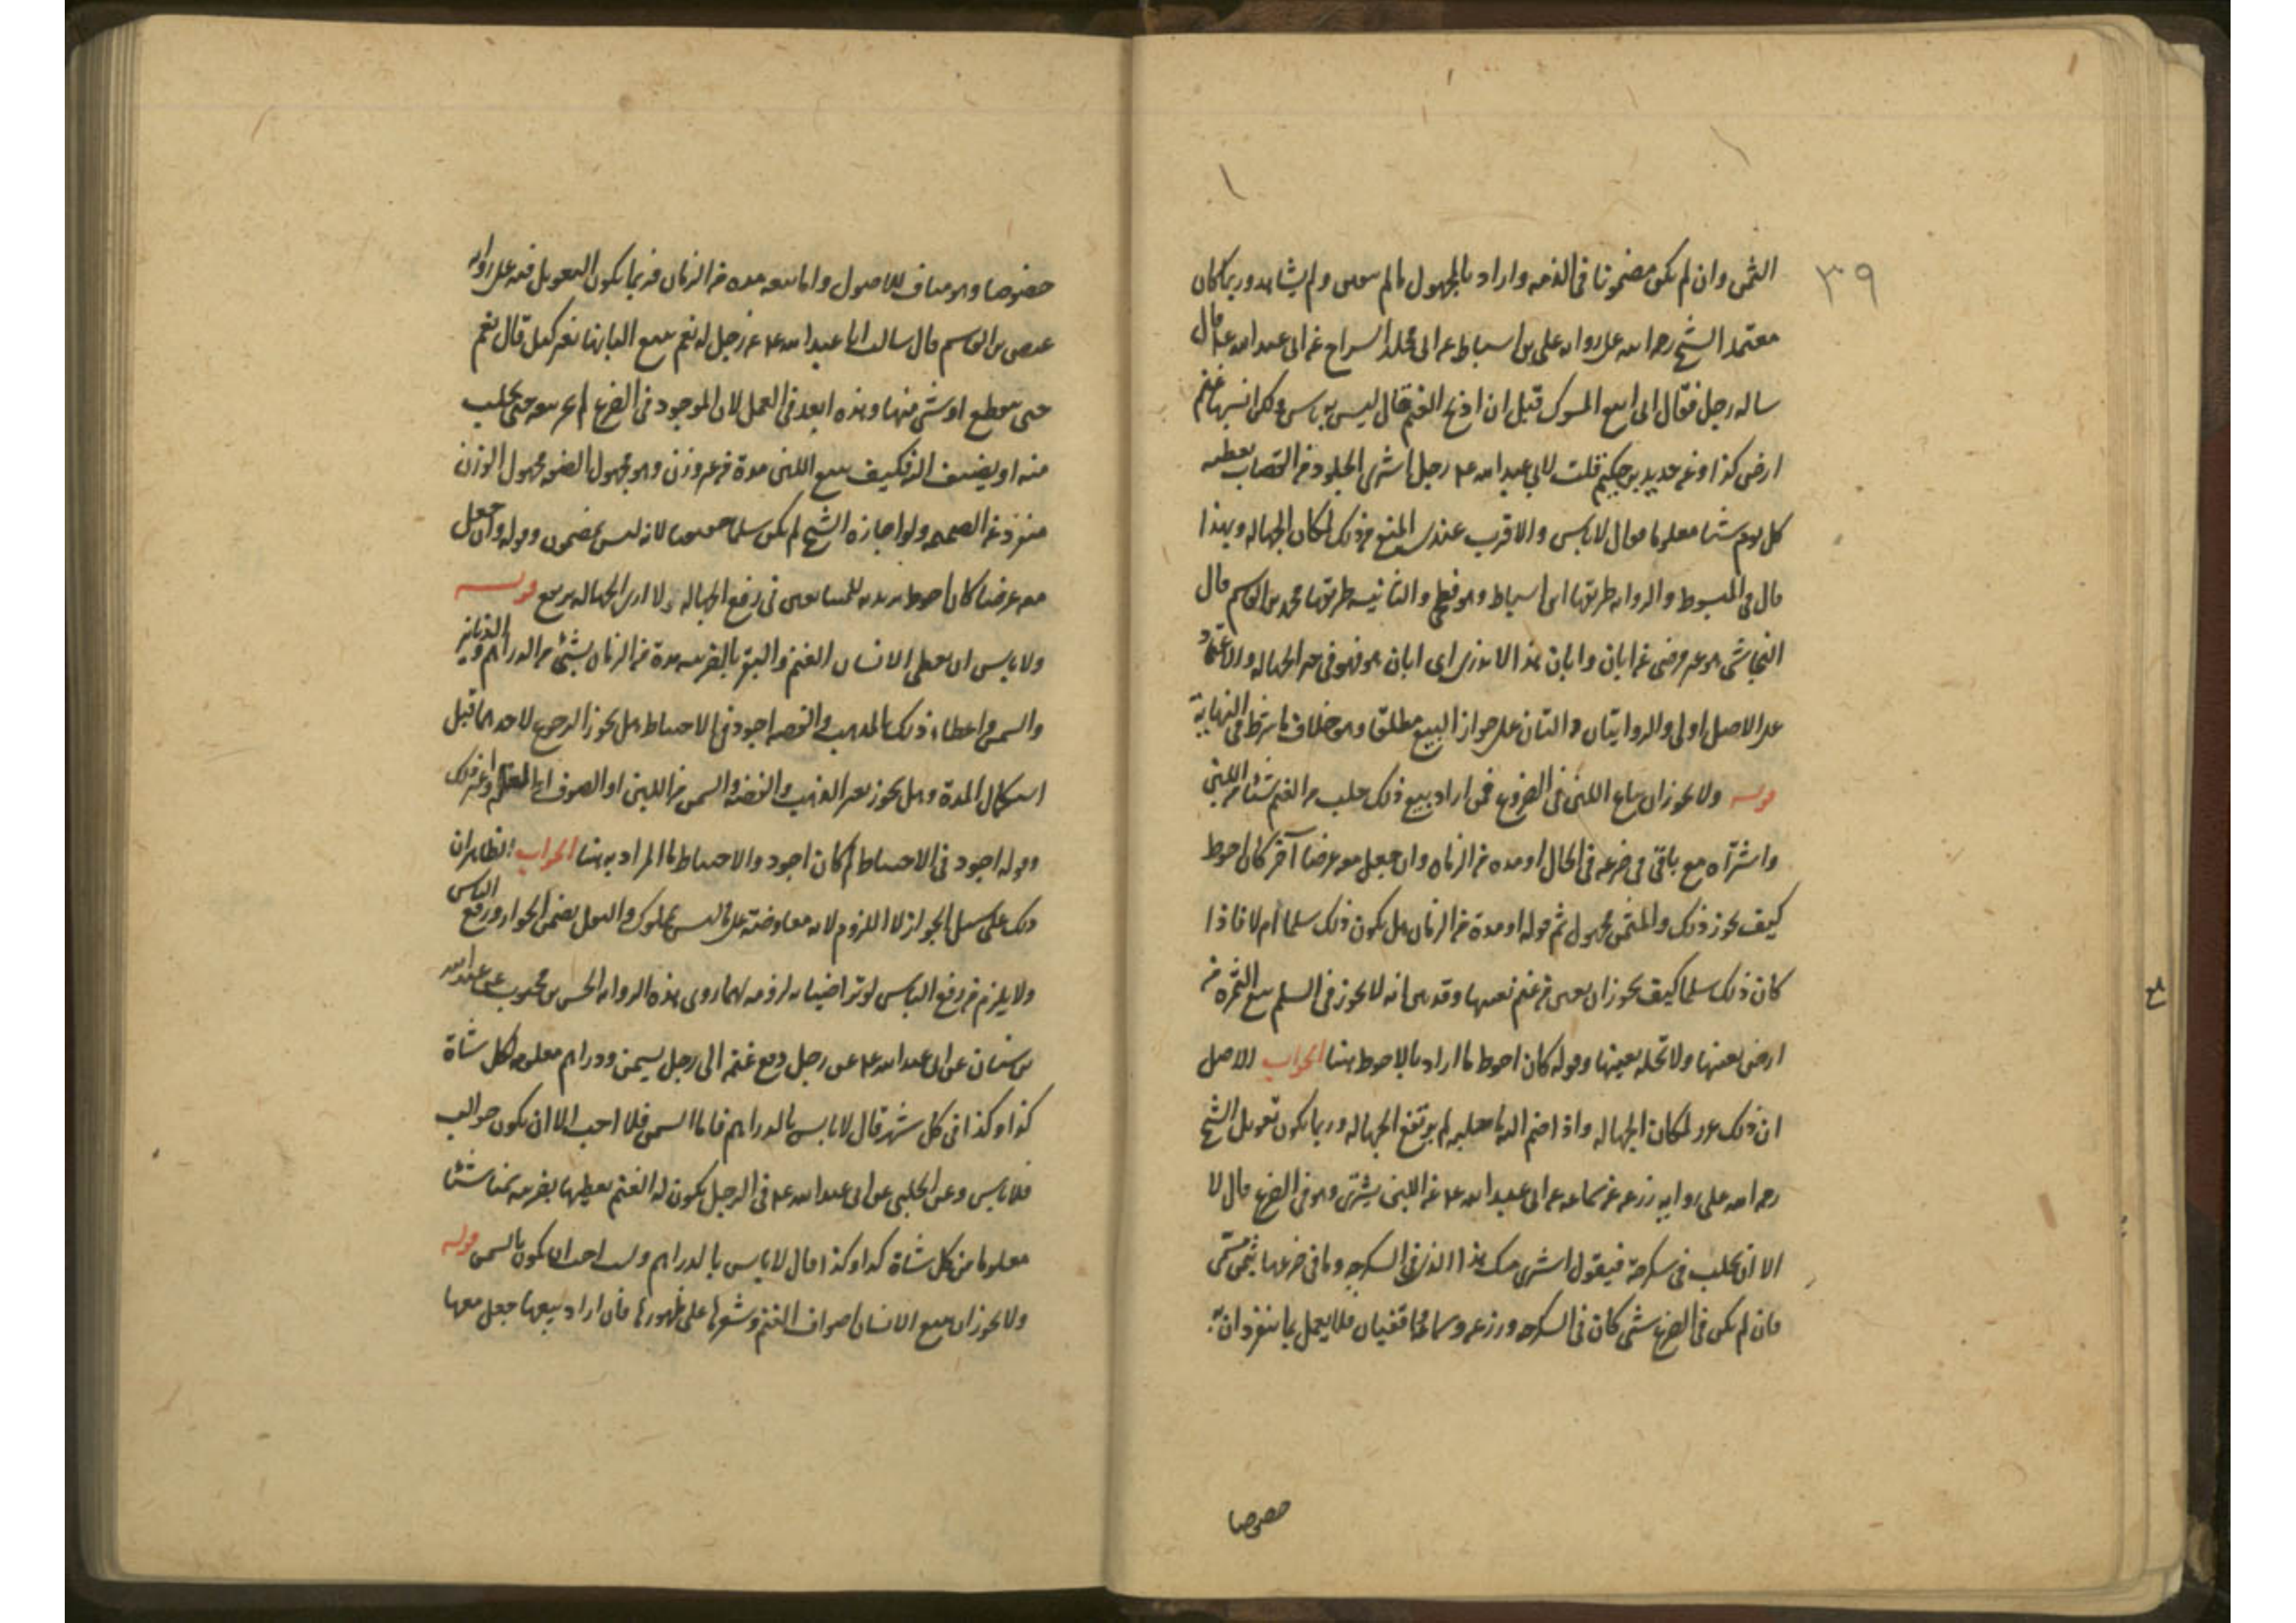 ٣٩
الثمن وان لم يكن مضمونا فى الذمه واراد بالمجهول مالم يعين ولم يشاهد وربما كان
معتمد الشيخ رحمه الله على رواية على بن اسباط عن ابى مخلد السراج عن ابى عبد الله ع قال
ساله رجل فقال انى ابيع المسوك قبل ان اذبح الغنم قال ليس به باس ولكن انسبها غنم
ارض كذا وعن حديد بن حكيم قلت لابي عبد الله ع رجل اشترى الجلود من القصاب يعطيه
كل يوم شيئا معلوما فقال لا باس والاقرب عندى المنع من ذلك لمكان الجهاله وبهذا
قال فى المبسوط والروايه طريقها ابن اسباط وهو فطحي والثانيه طريقها محمد بن القاسم قال
النجاشى هو عن ابان وابان هذا لا ندرى اى ابان هو فهو فى حيز الجهاله والاعتماد
على الاصل اولى والروايتان دالتان على جواز البيع مطلقا وهو خلاف ما شرط فى النهاية
قوله ولا يجوز ان يباع اللبن فى الضروع فمن اراد بيع ذلك حلب من الغنم شيئا من اللبن
واشتراه مع باقى فى ضرعه فى الحال او مده من الزمان وان جعل معه عرضا آخر كان احوط
كيف يجوز ذلك والمثمن مجهول ثم قوله او مدة من الزمان هل يكون ذلك سلما أم لا فاذا
كان ذلك سلما كيف يجوز ان يعين من غنم بعينها وقد بين انه لا يجوز فى السلم بيع الثمره من
ارض بعينها ولا نخله بعينها وقوله كان احوط ما اراد بالاحوط هنا الجواب الاصل
ان ذلك غرر لمكان الجهاله واذا ضم اليه ما حلبه لم يرتفع الجهاله وربما يكون تعويل الشيخ
رحمه الله على رواية زرعه عن سماعه عن ابى عبد الله ع عن اللبن يشترى وهو فى الضرع قال لا
الا ان يحلب فى سكرجة فيقول اشترى منك هذا الذى فى السكرجه وما فى ضرعها بثمن مسمى
فان لم يكن فى الضرع شى كان فى السكرجه وزرعه وسماعه واقفيان فلا يعمل بما ينفردان به
خصوصا
خصوصا وهو مناف للاصول واما بيعه مده من الزمان فربما يكون التعويل فيه على روايه
عيص بن القاسم قال سالت ابا عبد الله ع عن رجل له نعم يبيع البانها بغير كيل قال نعم
حتى ينقطع او شى منها وهذه ابعد فى العمل لان الموجود فى الضرع لم يجز بيعه حتى يحلب
منه او يضيف اليه فكيف بيع اللبن مدة من غير وزن وهو مجهول الصفه مجهول الوزن
منفرد عن الضميمه ولو اجازه الشيخ لم يكن سلما لانه ليس بمضمون وقوله وان جعل
معه عرضا كان احوط يريد به للمتبايعين فى رفع الجهاله ولا ارى الجهاله يرتفع قوله
ولا باس ان يعطى الانسان الغنم والبقر بالضريبه مدة من الزمان بشئ من الدراهم والدنانير
والسمن واعطاء ذلك بالذهب والفضه اجود فى الاحتياط هل يجوز الرجوع لاحدهما قبل
استكمال المدة وهل يجوز بغير الذهب والفضه والسمن من اللبن او الصوف او غير ذلك
وقوله اجود فى الاحتياط لم كان اجود والاحتياط ما المراد به هنا الجواب الظاهر ان
ذلك على سبيل الجواز لا اللزوم لانه معاوضة على ما ليس بمملوك والقول يضمن الجواز ورفع الباس
ولا يلزم من رفع الباس لو تراضيا به لزومه لهما روى هذه الروايه الحسن بن محبوب عن عبد الله
بن سنان عن ابى عبد الله ع عن رجل دفع غنمه الى رجل بسمن ودراهم معلومه لكل شاة
كذا وكذا فى كل شهر قال لا باس بالدراهم فاما السمن فلا احب الا ان يكون حوالب
فلا باس وعن الحلبى عن ابى عبد الله ع فى الرجل يكون له الغنم يعطيها بضريبه سمنا شيئا
معلوما من كل شاة كذا وكذا قال لا باس بالدراهم ولست احب ان يكون بالسمن قوله
ولا يجوز ان يبيع الانسان اصواف الغنم وشعرها على ظهورها فان اراد بيعها جعل معها